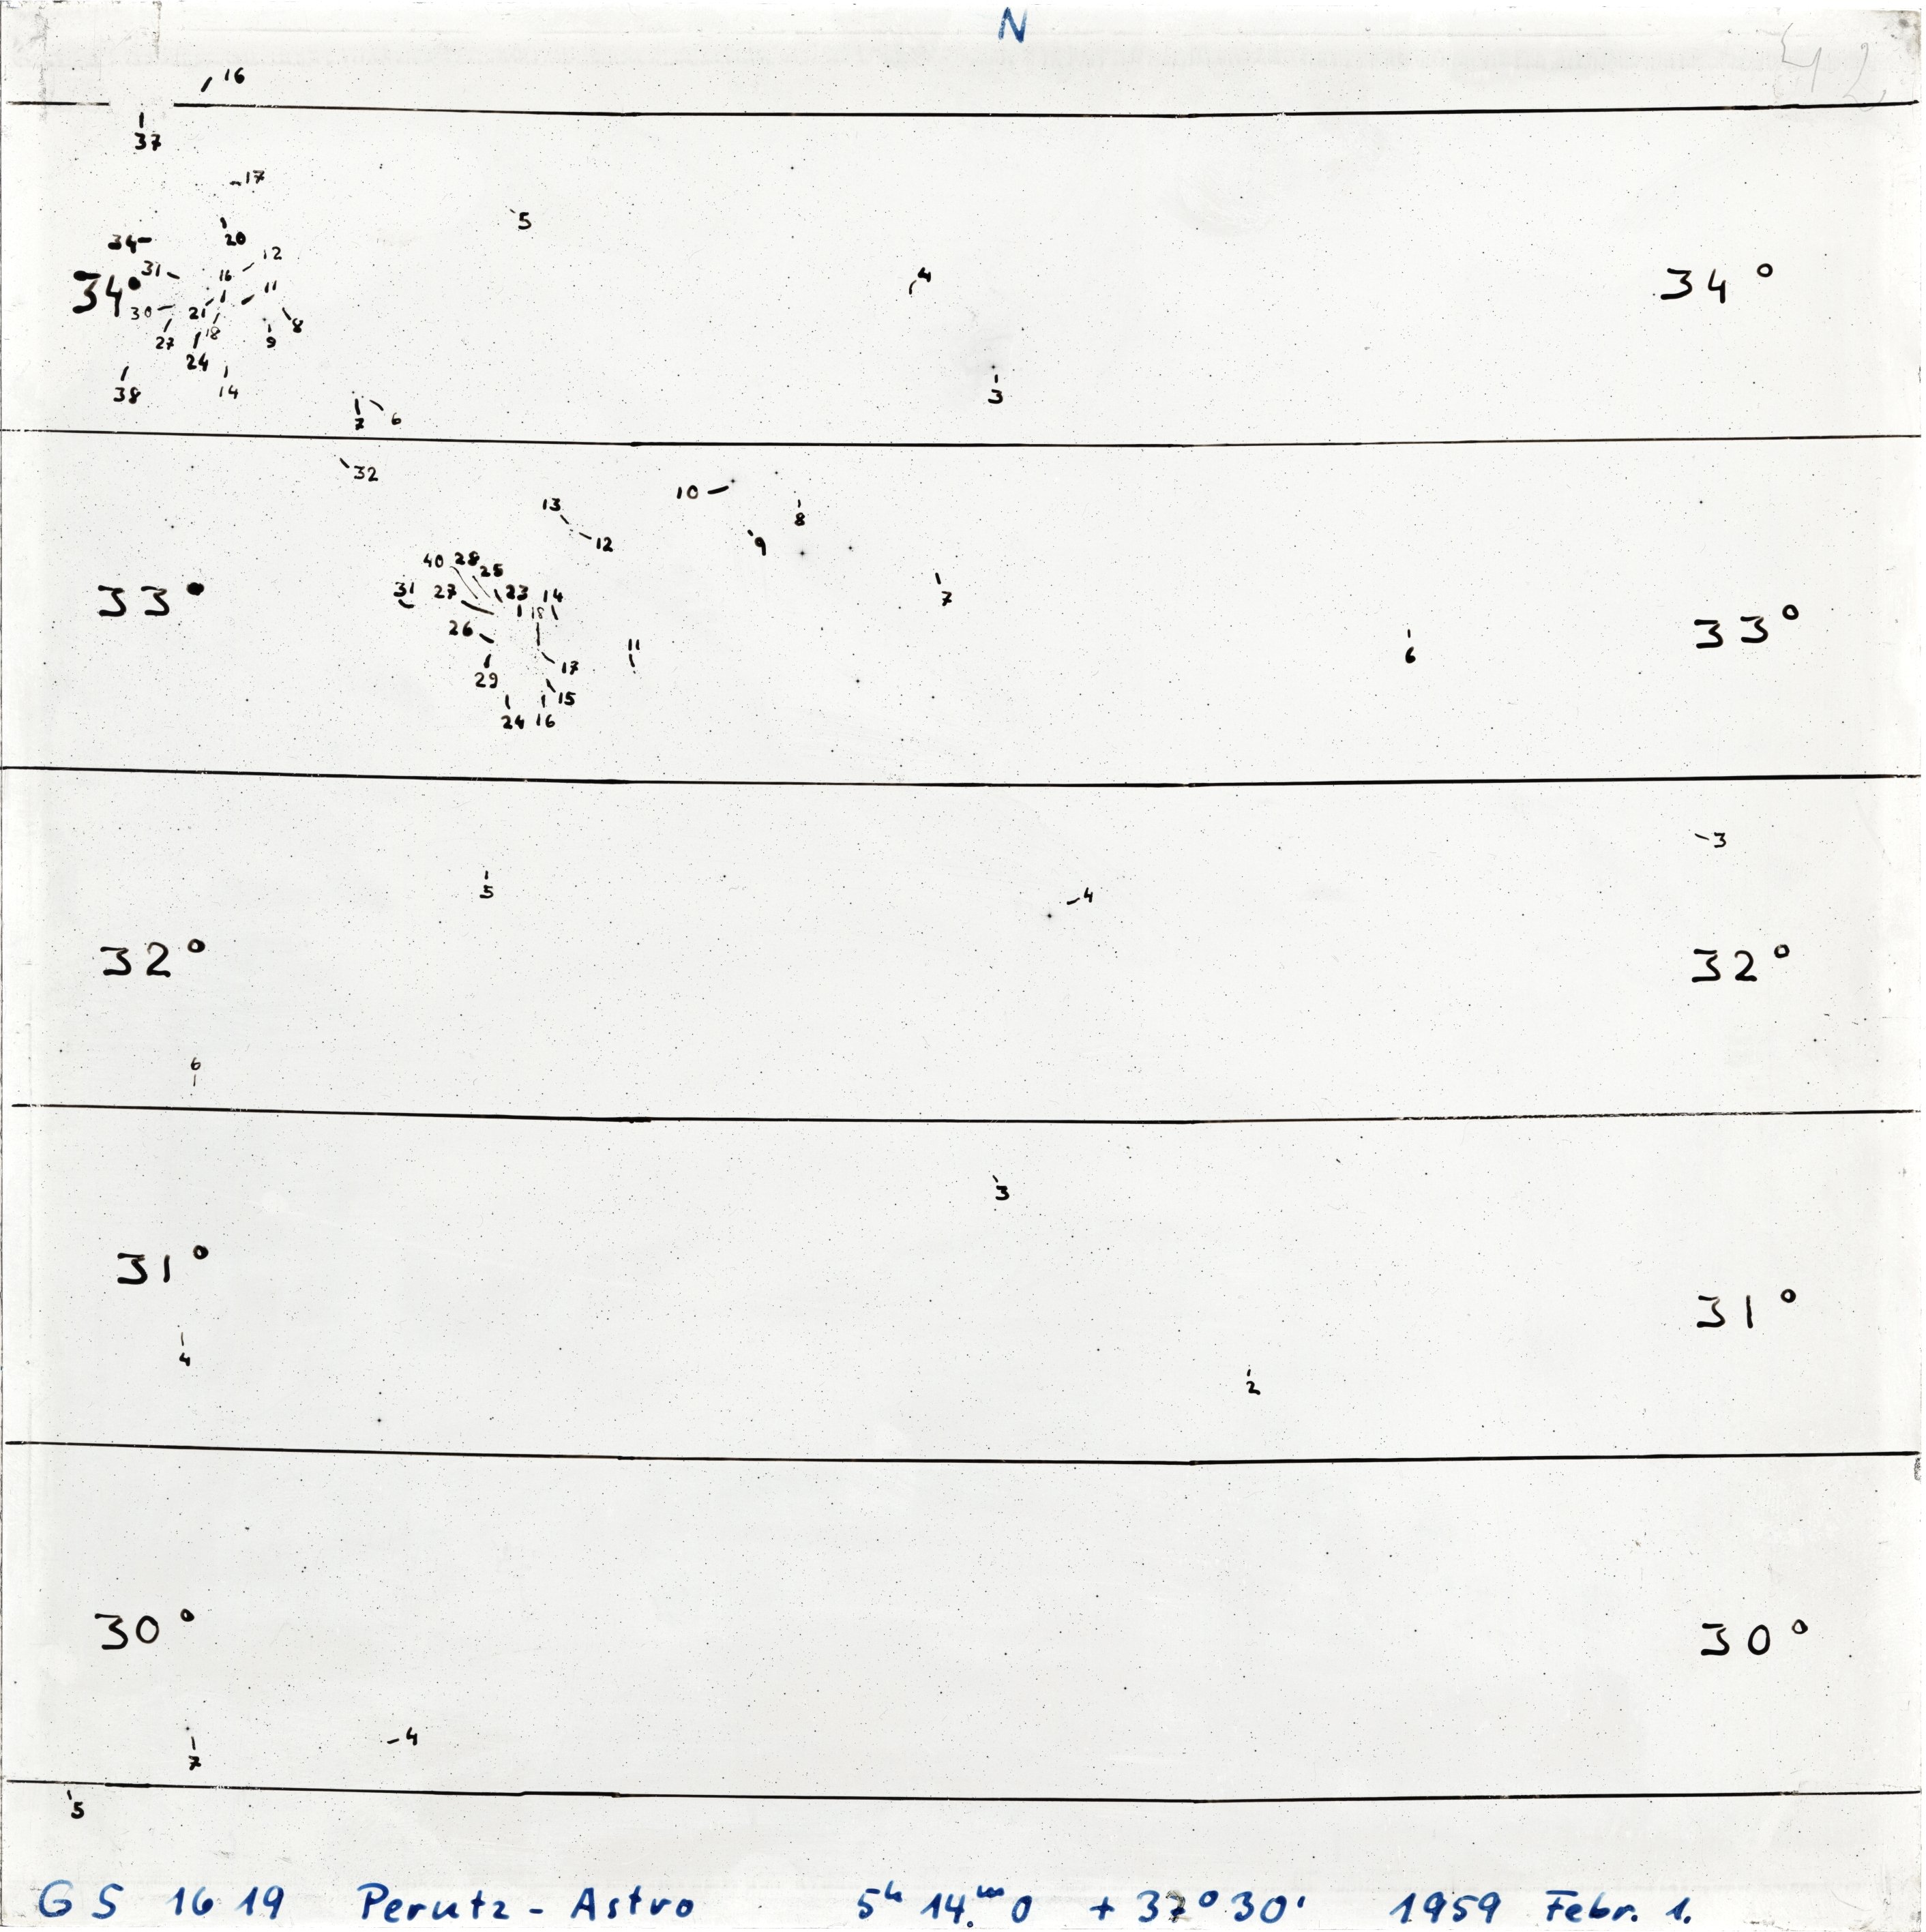 N
16
37
17
5
34
20
12
31
16
4
34°
11
34°
30
21
8
18
9
27
24
38
14
3
7
6
32
10
13
8
12
9
40 28 25
31 27 23 14
33°
18
7
26
33°
11
6
17
29
15
24 16
3
5
4
32°
32°
6
3
31°
31°
4
2
30°
30°
7
4
5
GS 1619 Perutz-Astro 5h 14.m0 + 37° 30' 1959 Febr. 1.